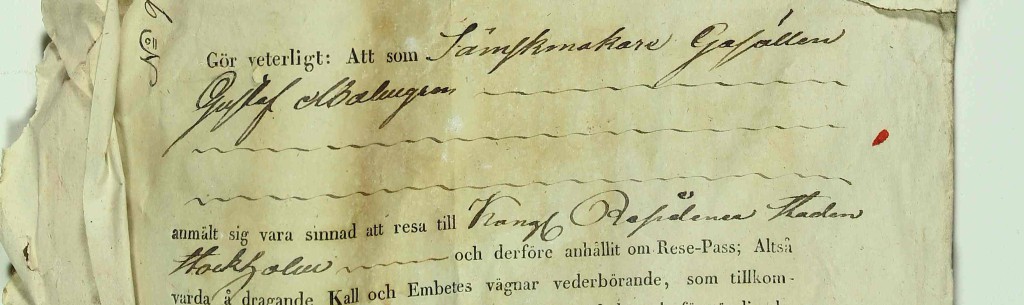 No 6
Gör veterligt: Att som Sämskmakare Gesällen
Gustaf Malmgren
anmält sig vara sinnad att resa till Kongl Residence Staden
Stockholm och derföre anhållit om Rese-Pass; Altså
varda å dragande Kall och Embetes vägnar vederbörande, som tillkom-